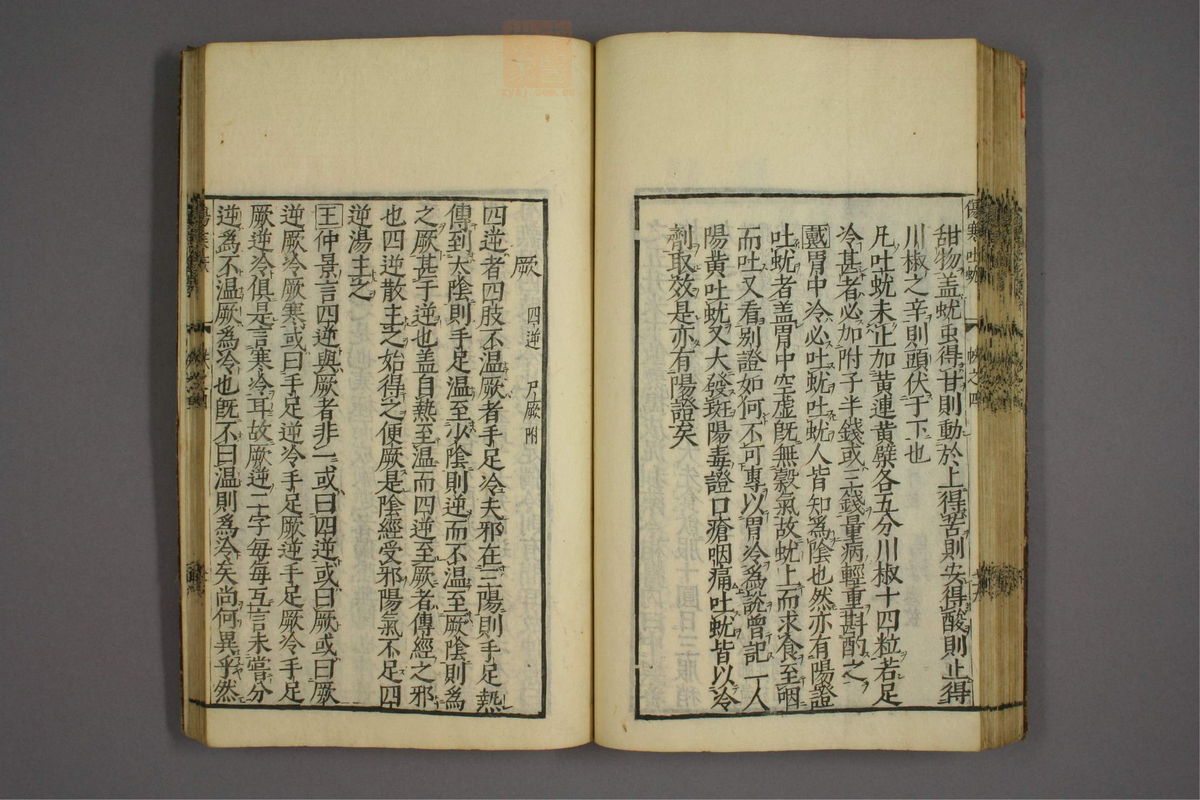 傷寒吐蚘
帙之四
甜物盖蚘虫得甘則動於上得苦則安得酸則止得
川椒之辛則頭伏于下也
凡吐蚘未止加黄連黄檗各五分川椒十四粒若足
冷甚者必加附子半錢或三錢量病輕重斟酌之
戴胃中冷必吐蚘吐蚘人皆知為陰也然亦有陽證
吐蚘者盖胃中空虚既無穀氣故蚘上而求食至咽
而吐又看别證如何不可專以胃冷為說曾記一人
陽黄吐蚘又大發斑陽毒證口瘡咽痛吐蚘皆以冷
劑取效是亦有陽證矣
厥 四逆 尸厥附
四逆者四肢不温厥者手足冷夫邪在三陽則手足熱
傳到太陰則手足温至少陰則逆而不温至厥陰則為
之厥甚于逆也盖自熱至温而四逆至厥者傳經之邪
也四逆散主之始得之便厥是陰經受邪陽氣不足四
逆湯主之
王仲景言四逆與厥者非一或曰四逆或曰厥或曰厥
逆厥冷厥寒或曰手足逆冷手足厥逆手足厥冷手足
厥逆冷俱是言寒冷耳故厥逆二字每每互言未嘗分
逆為不温厥為冷也既不曰温則為冷矣尚何異乎然